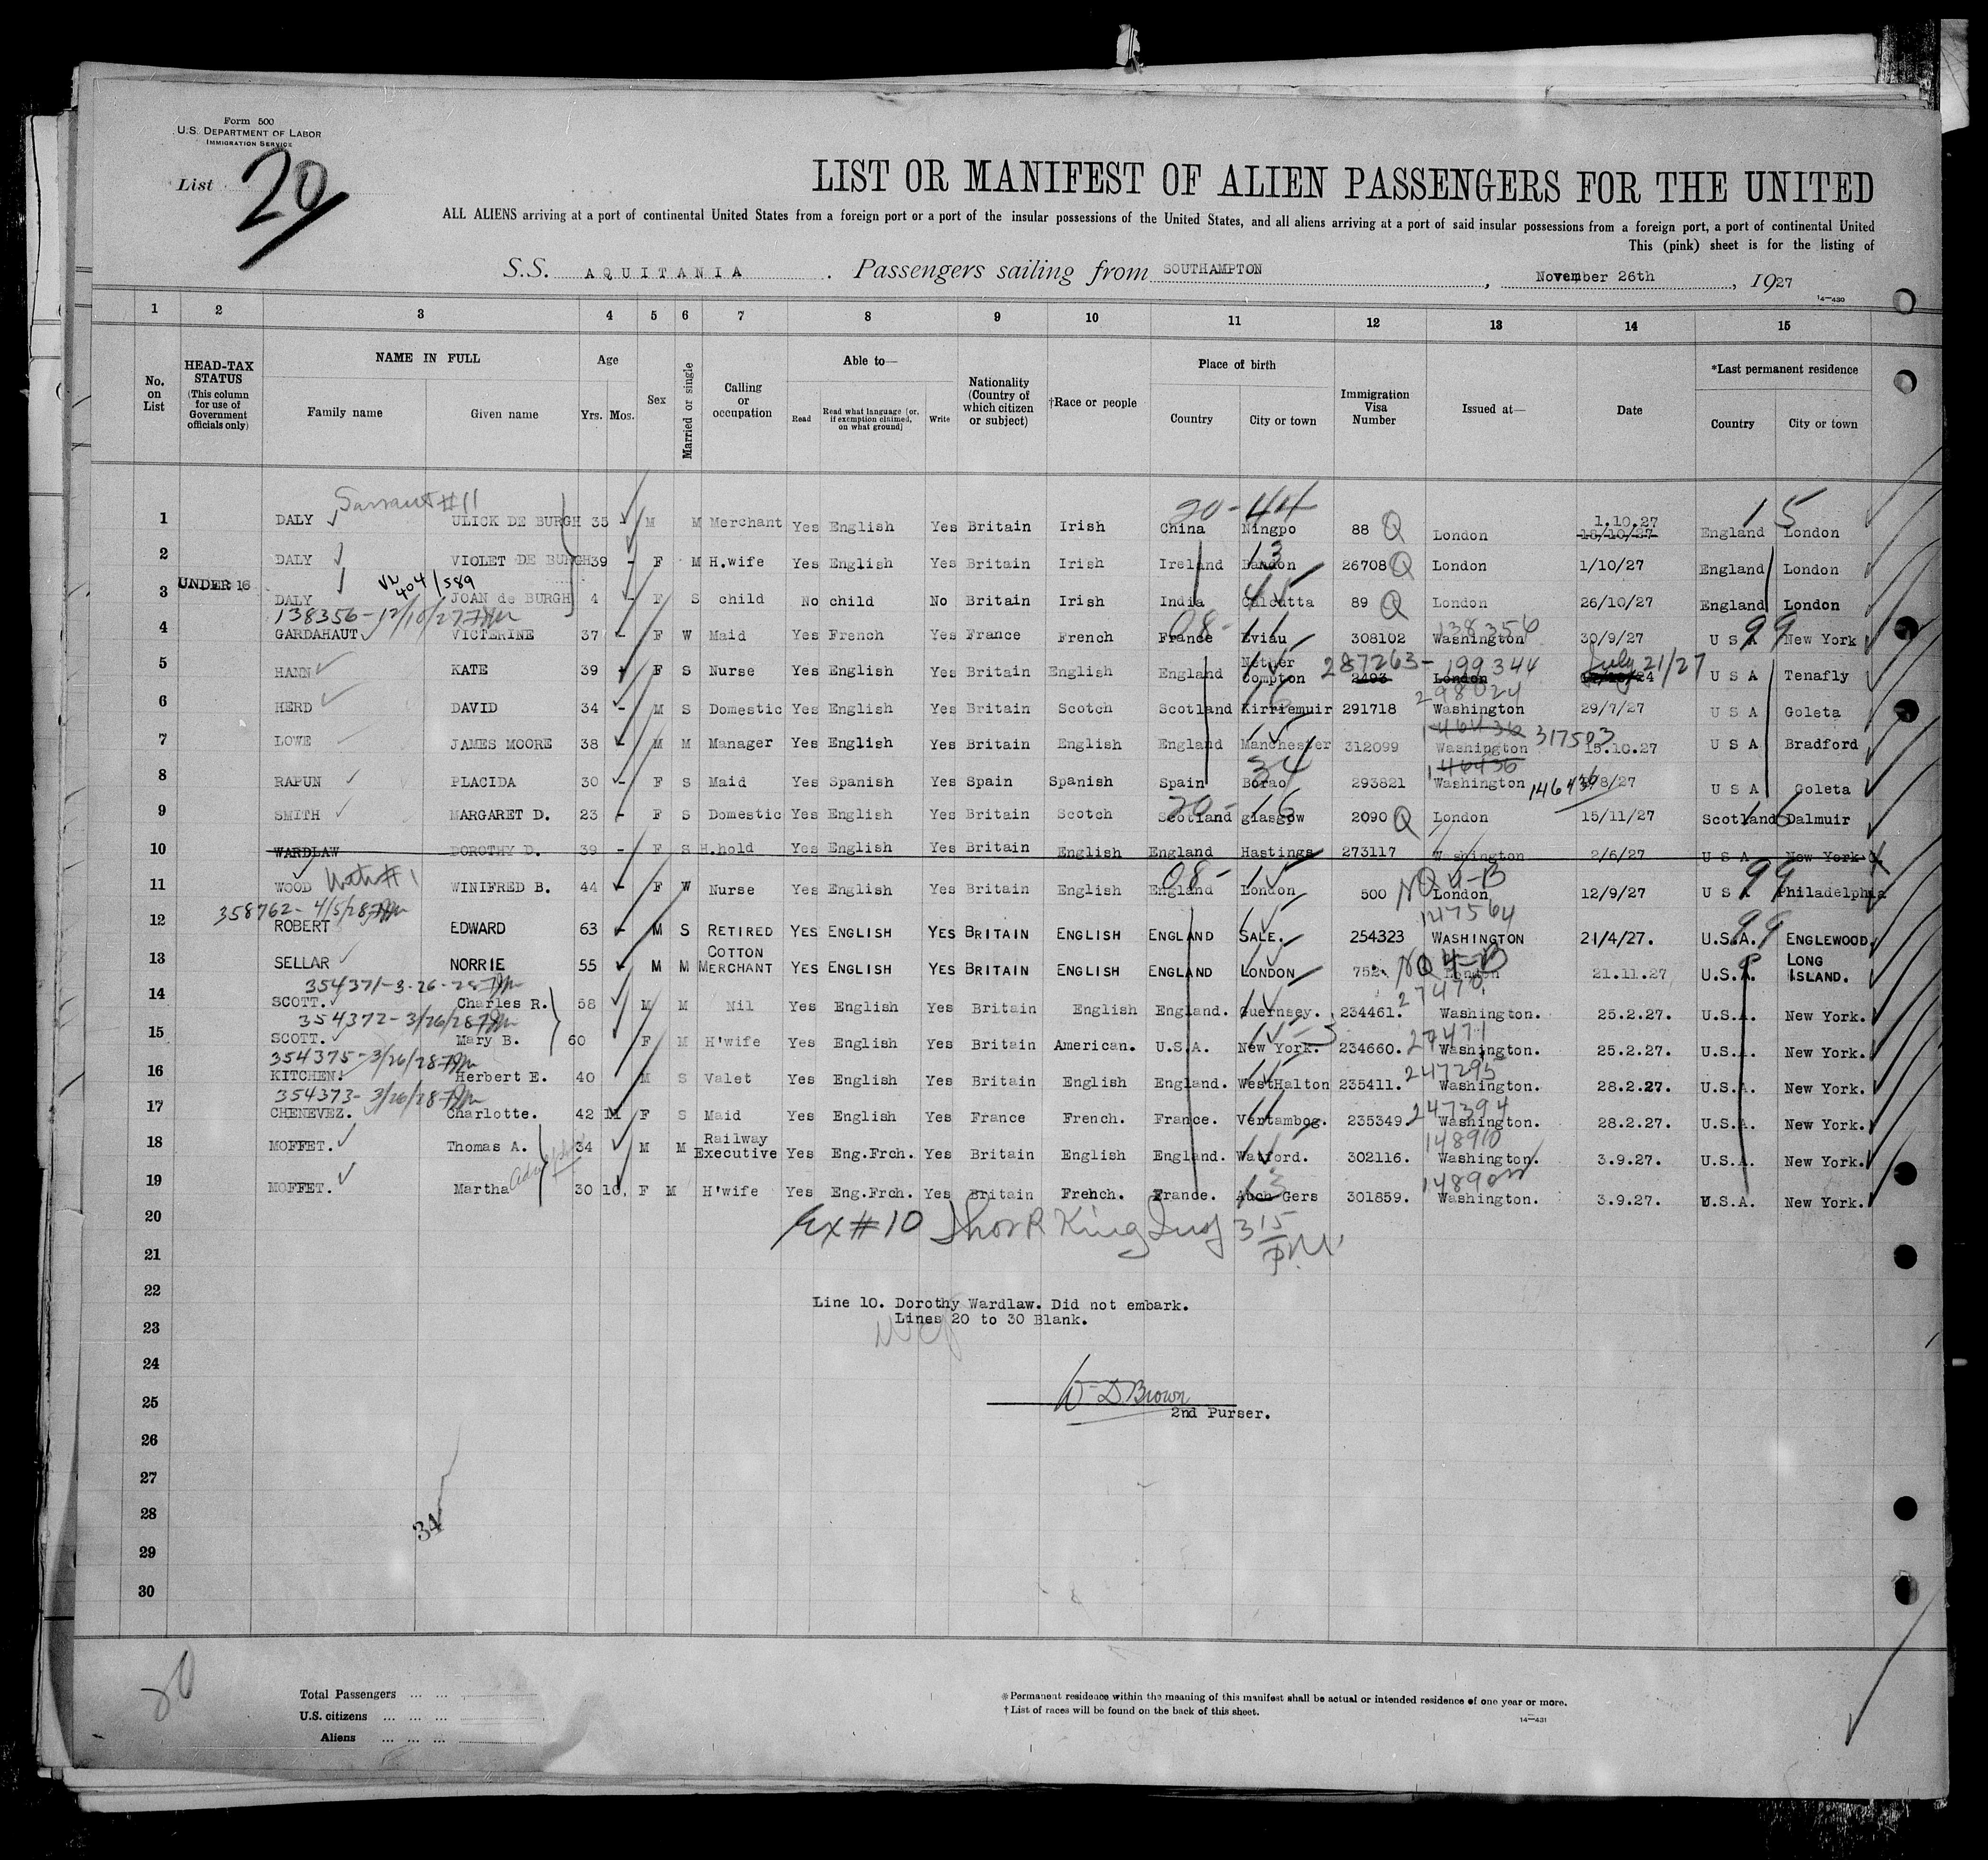 Form 500
U.S. DEPARTMENT OF LABOR
IMMIGRATION SERVICE
List 20
LIST OR MANIFEST OF ALIEN PASSENGERS FOR THE UNITED
ALL ALIENS arriving at a port of continental United States from a foreign port or a port of the insular possessions of the United States, and all aliens arriving at a port of said insular possessions from a foreign port, a port of continental United
This (pink) sheet is for the listing of
S.S. AQUITANIA. Passengers sailing from SOUTHAMPTON, November 26th, 1927
14—430
1 2 3 4 5 6 7 8 9 10 11 12 13 14 15
No. on List
HEAD-TAX STATUS (This column for use of Government officials only)
NAME IN FULL Family name Given name
Age Yrs. Mos.
Sex
Married or single
Calling or occupation
Able to— Read Read what language [or, if exemption claimed, on what ground] Write
Nationality (Country of which citizen or subject)
†Race or people
Place of birth Country City or town
Immigration Visa Number
Issued at—
Date
*Last permanent residence Country City or town
20-44 15
1 DALY ULICK DE BURGH 35 - M M Merchant Yes English Yes Britain Irish China Ningpo 88 Q London 1.10.27 18/10/27 England London
2 DALY VIOLET DE BURGH 39 - F M H.wife Yes English Yes Britain Irish Ireland Bandon 13 26708 Q London 1/10/27 England London
404/589
3 UNDER 16 DALY JOAN de BURGH 4 - F S child No child No Britain Irish India Calcutta 45 89 Q London 26/10/27 England London
138356-12/10/27 08- 138356 99
4 GARDAHAUT VICTERINE 37 - F W Maid Yes French Yes France French France Eviau 308102 Washington 30/9/27 U S A New York
5 HANN KATE 39 F S Nurse Yes English Yes Britain English England Nether Compton 287263- 2493 199344 London July 21/27 U S A Tenafly
298024
6 HERD DAVID 34 - M S Domestic Yes English Yes Britain Scotch Scotland Kirriemuir 16 291718 Washington 29/7/27 U S A Goleta
146436 317503
7 LOWE JAMES MOORE 38 - M M Manager Yes English Yes Britain English England Manchester 312099 Washington 15.10.27 U S A Bradford
34 146436
8 RAPUN PLACIDA 30 - F S Maid Yes Spanish Yes Spain Spanish Spain Borao 293821 Washington 146436 8/27 U S A Goleta
20-16
9 SMITH MARGARET D. 23 - F S Domestic Yes English Yes Britain Scotch Scotland glasgow 2090 Q London 15/11/27 Scotland Dalmuir
10 WARDLAW DOROTHY D. 39 - F S H.hold Yes English Yes Britain English England Hastings 273117 Washington 2/6/27 U S A New York
08- NQ 4-B 99
11 WOOD WINIFRED B. 44 - F W Nurse Yes English Yes Britain English England London 500 London 12/9/27 U S A Philadelphia
358762- 4/5/28 147564 99
12 ROBERT EDWARD 63 - M S RETIRED YES ENGLISH YES BRITAIN ENGLISH ENGLAND SALE. 254323 WASHINGTON 21/4/27. U.S.A. ENGLEWOOD.
13 SELLAR NORRIE 55 M M COTTON MERCHANT YES ENGLISH YES BRITAIN ENGLISH ENGLAND LONDON 752. NQ 4-B London 21.11.27 U.S.A. LONG ISLAND.
354371-3-26-28 27470
14 SCOTT. Charles R. 58 M M Nil Yes English Yes Britain English England. Guernsey. 234461. Washington. 25.2.27. U.S.A. New York.
354372-3/26/28 27471
15 SCOTT. Mary B. 60 F M H'wife Yes English Yes Britain American. U.S.A. New York. 234660. Washington. 25.2.27. U.S.A. New York.
354375-3/26/28 247295
16 KITCHEN. Herbert E. 40 M S Valet Yes English Yes Britain English England. WestHalton 235411. Washington. 28.2.27. U.S.A. New York.
354373-3/26/28 247394
17 CHENEVEZ. Charlotte. 42 11 F S Maid Yes English Yes France French. France. Vertambog. 235349. Washington. 28.2.27. U.S.A. New York.
148910
18 MOFFET. Thomas A. 34 M M Railway Executive Yes Eng.Frch. Yes Britain English England. Watford. 302116. Washington. 3.9.27. U.S.A. New York.
19 MOFFET. Martha 30 10. F M H'wife Yes Eng.Frch. Yes Britain French. France. Auch Gers 13 301859. Washington. 3.9.27. U.S.A. New York.
20 Ex #10 Thos R King Insp 3 15 P.M.
21
22 Line 10. Dorothy Wardlaw. Did not embark.
Lines 20 to 30 Blank.
23
24
W D. Brown
25 2nd Purser.
26
27
28
34
29
30
Total Passengers ... ...
U.S. citizens ... ... ...
Aliens ... ... ...
*Permanent residence within the meaning of this manifest shall be actual or intended residence of one year or more.
†List of races will be found on the back of this sheet.
14—431